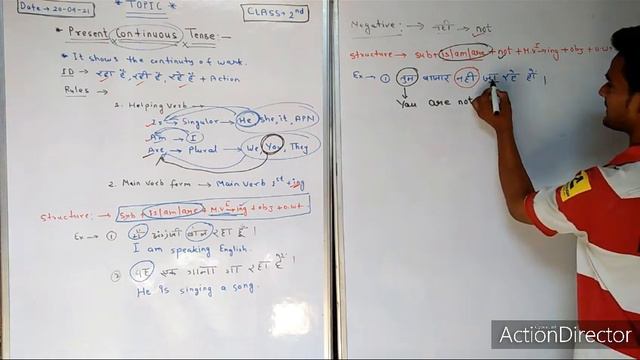 Date → 20-04-21
* TOPIC *
CLASS → 2nd
* Present Continuous Tense :-
* It shows the continuty of work.
ID → रहा है, रही है, रहे हैं + Action
Rules →
1. Helping Verb →
Is → Singular → He, She, it, APN
Am → I
Are → Plural → We, You, They
2. Main verb form → Main verb 1st + ing
Structure: → Sub + is/am/are + M.V I ing + obj + o.wt
Ex → ① मैं अंग्रेजी बोल रहा हूँ ।
I am speaking English.
② वह एक गाना गा रहा है ।
He is singing a song.
Negative: → नहीं → not
Structure → Sub + is/am/are + not + M.V I ing + obj + o.wt
Ex → ① तुम बाजार नहीं जा रहे हो ।
You are not
ActionDirector